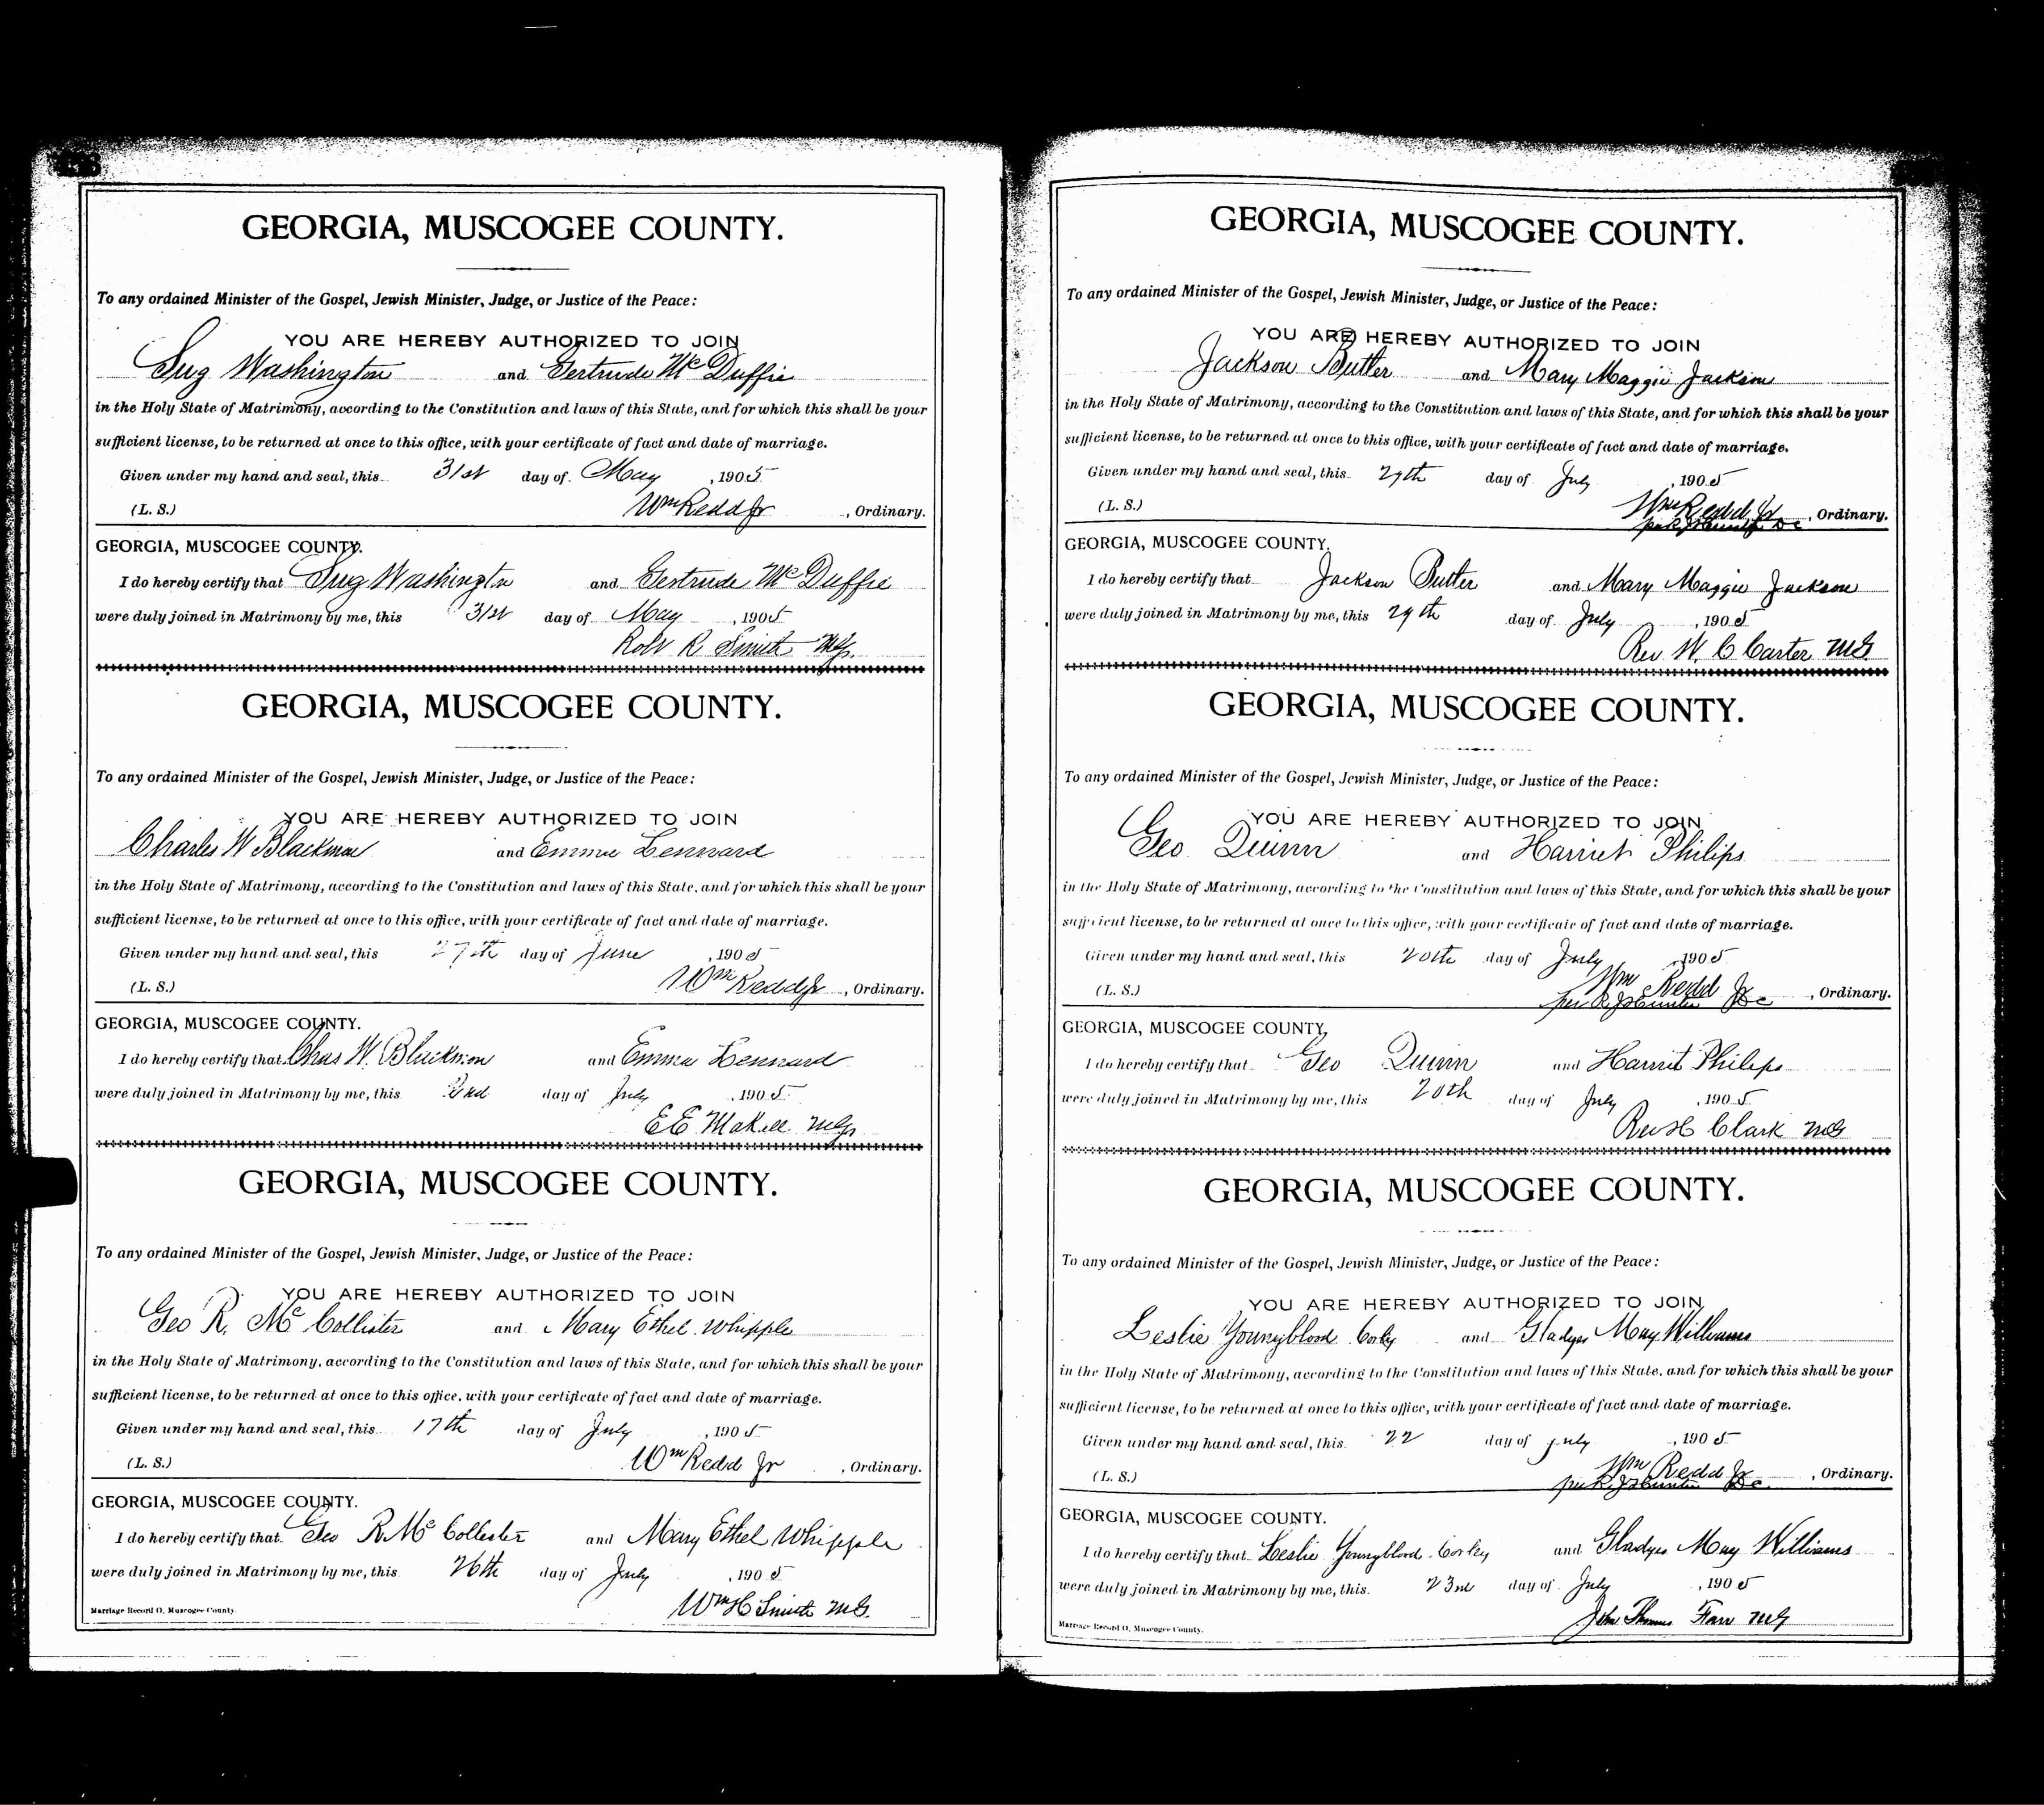 GEORGIA, MUSCOGEE COUNTY.
To any ordained Minister of the Gospel, Jewish Minister, Judge, or Justice of the Peace:
YOU ARE HEREBY AUTHORIZED TO JOIN
Sug Washington and Gertrude McDuffie
in the Holy State of Matrimony, according to the Constitution and laws of this State, and for which this shall be your
sufficient license, to be returned at once to this office, with your certificate of fact and date of marriage.
Given under my hand and seal, this 31st day of May, 1905
(L. S.) Wm Redd Jr, Ordinary.
GEORGIA, MUSCOGEE COUNTY.
I do hereby certify that Sug Washington and Gertrude McDuffie
were duly joined in Matrimony by me, this 31st day of May, 1905
Robt R Smith MG.
GEORGIA, MUSCOGEE COUNTY.
To any ordained Minister of the Gospel, Jewish Minister, Judge, or Justice of the Peace:
YOU ARE HEREBY AUTHORIZED TO JOIN
Charles W Blackmon and Emma Lennard
in the Holy State of Matrimony, according to the Constitution and laws of this State, and for which this shall be your
sufficient license, to be returned at once to this office, with your certificate of fact and date of marriage.
Given under my hand and seal, this 27th day of June, 1905
(L. S.) Wm Redd Jr, Ordinary.
GEORGIA, MUSCOGEE COUNTY.
I do hereby certify that Chas W. Blackmon and Emma Lennard
were duly joined in Matrimony by me, this 2nd day of July, 1905
E E MG
GEORGIA, MUSCOGEE COUNTY.
To any ordained Minister of the Gospel, Jewish Minister, Judge, or Justice of the Peace:
YOU ARE HEREBY AUTHORIZED TO JOIN
Geo R. McCollister and Mary Ethel Whipple
in the Holy State of Matrimony, according to the Constitution and laws of this State, and for which this shall be your
sufficient license, to be returned at once to this office, with your certificate of fact and date of marriage.
Given under my hand and seal, this 17th day of July, 1905
(L. S.) Wm Redd Jr, Ordinary.
GEORGIA, MUSCOGEE COUNTY.
I do hereby certify that Geo R McCollister and Mary Ethel Whipple
were duly joined in Matrimony by me, this 26th day of July, 1905
Wm H Smith MG.
Marriage Record O, Muscogee County.
GEORGIA, MUSCOGEE COUNTY.
To any ordained Minister of the Gospel, Jewish Minister, Judge, or Justice of the Peace:
YOU ARE HEREBY AUTHORIZED TO JOIN
Jackson Butler and Mary Maggie Jackson
in the Holy State of Matrimony, according to the Constitution and laws of this State, and for which this shall be your
sufficient license, to be returned at once to this office, with your certificate of fact and date of marriage.
Given under my hand and seal, this 29th day of July, 1905
(L. S.) Wm Redd Jr, Ordinary.
per R J Hunter DC
GEORGIA, MUSCOGEE COUNTY.
I do hereby certify that Jackson Butler and Mary Maggie Jackson
were duly joined in Matrimony by me, this 29th day of July, 1905
Rev W. C Carter MG
GEORGIA, MUSCOGEE COUNTY.
To any ordained Minister of the Gospel, Jewish Minister, Judge, or Justice of the Peace:
YOU ARE HEREBY AUTHORIZED TO JOIN
Geo Quinn and Harriet Philips
in the Holy State of Matrimony, according to the Constitution and laws of this State, and for which this shall be your
sufficient license, to be returned at once to this office, with your certificate of fact and date of marriage.
Given under my hand and seal, this 20th day of July, 1905
(L. S.) Wm Redd Jr, Ordinary.
per R J Hunter DC
GEORGIA, MUSCOGEE COUNTY,
I do hereby certify that Geo Quinn and Harriet Philips
were duly joined in Matrimony by me, this 20th day of July, 1905
Rev H Clark MG
GEORGIA, MUSCOGEE COUNTY.
To any ordained Minister of the Gospel, Jewish Minister, Judge, or Justice of the Peace:
YOU ARE HEREBY AUTHORIZED TO JOIN
Leslie Youngblood Corley and Gladys May Williams
in the Holy State of Matrimony, according to the Constitution and laws of this State, and for which this shall be your
sufficient license, to be returned at once to this office, with your certificate of fact and date of marriage.
Given under my hand and seal, this 22 day of July, 1905
(L. S.) Wm Redd Jr, Ordinary.
per R J Hunter DC.
GEORGIA, MUSCOGEE COUNTY.
I do hereby certify that Leslie Youngblood Corley and Gladys May Williams
were duly joined in Matrimony by me, this 23rd day of July, 1905
John Thomas Farr MG
Marriage Record O, Muscogee County.